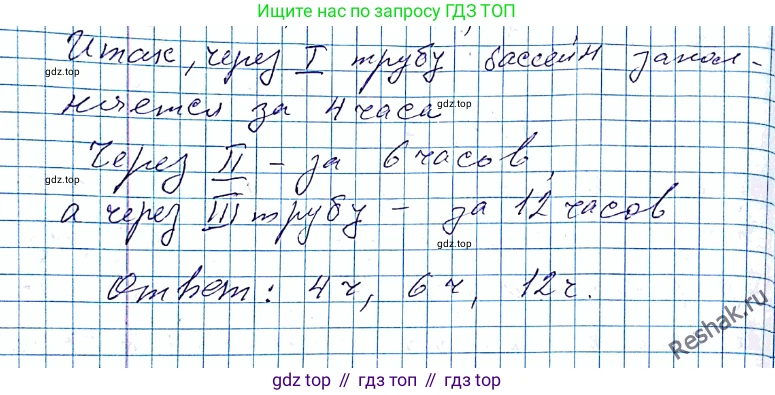 Ищите нас по запросу ГДЗ ТОП
Итак, через I трубу бассейн запол-
gdz top
няется за 4 часа
gdz top
Через II - за 6 часов,
gdz top
а через III трубу - за 12 часов
gdz top
Ответ: 4 ч, 6 ч, 12 ч.
Reshak.ru
gdz top // гдз топ // gdz top